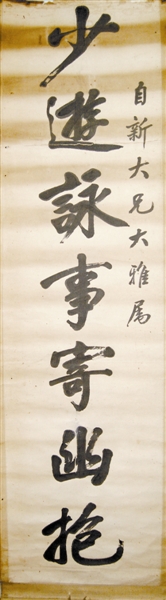 自新大兄大雅属
少遊詠事寄幽抱